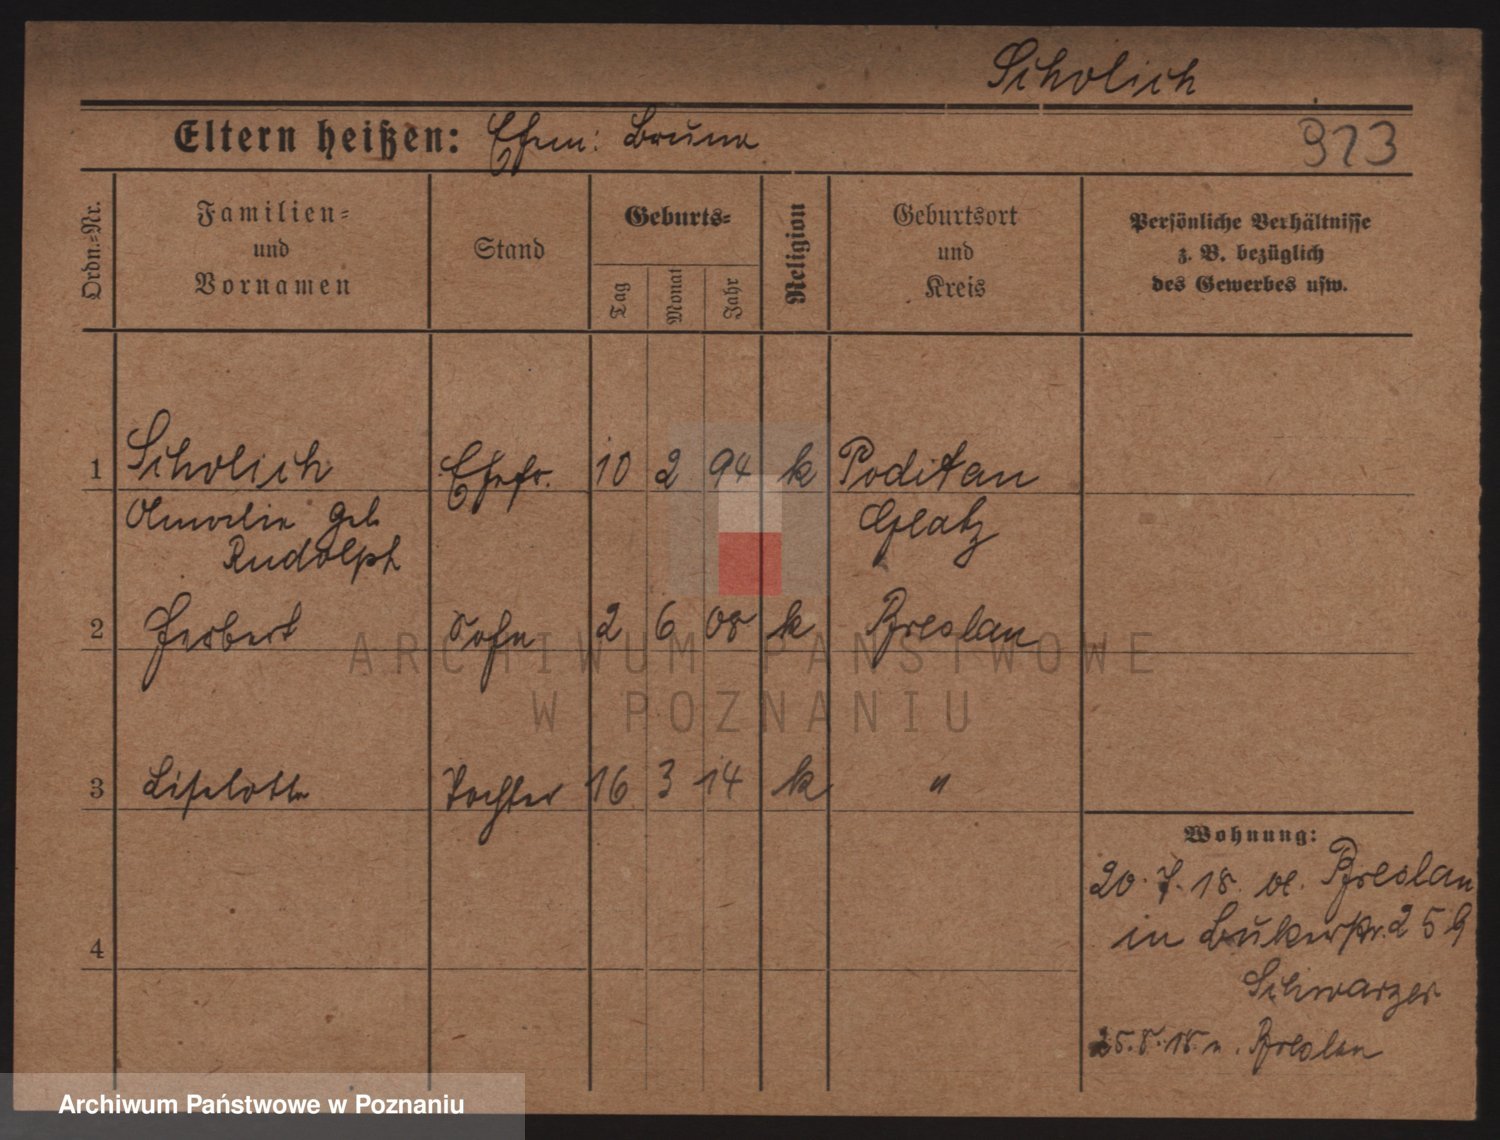 Scholich
Eltern heißen: Ehem: Bruno
913
Ordn.-Nr.
Familien-
und
Vornamen
Stand
Geburts-
Tag
Monat
Jahr
Religion
Geburtsort
und
Kreis
Persönliche Verhältnisse
z. B. bezüglich
des Gewerbes usw.
1 Scholich Ehefr. 10 2 94 k Poditau
Amalie geb. Glatz
Rudolph
2 Herbert Sohn 2 6 08 k Breslau
3 Liselotte Tochter 16 3 14 k "
4
Wohnung:
20. 7. 18. v. Breslau
in Bukerstr. 25 b
Schwarzer
25. 8. 18. n. Breslau
ARCHIWUM PAŃSTWOWE
W POZNANIU
Archiwum Państwowe w Poznaniu